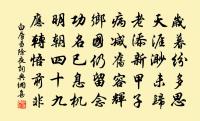 歲暮紛多思
天涯渺未歸
老添新甲子
病減舊容輝
鄉國仍留念
功名已息機
明朝四十九
應轉悟前非
白居易除夜詞典網